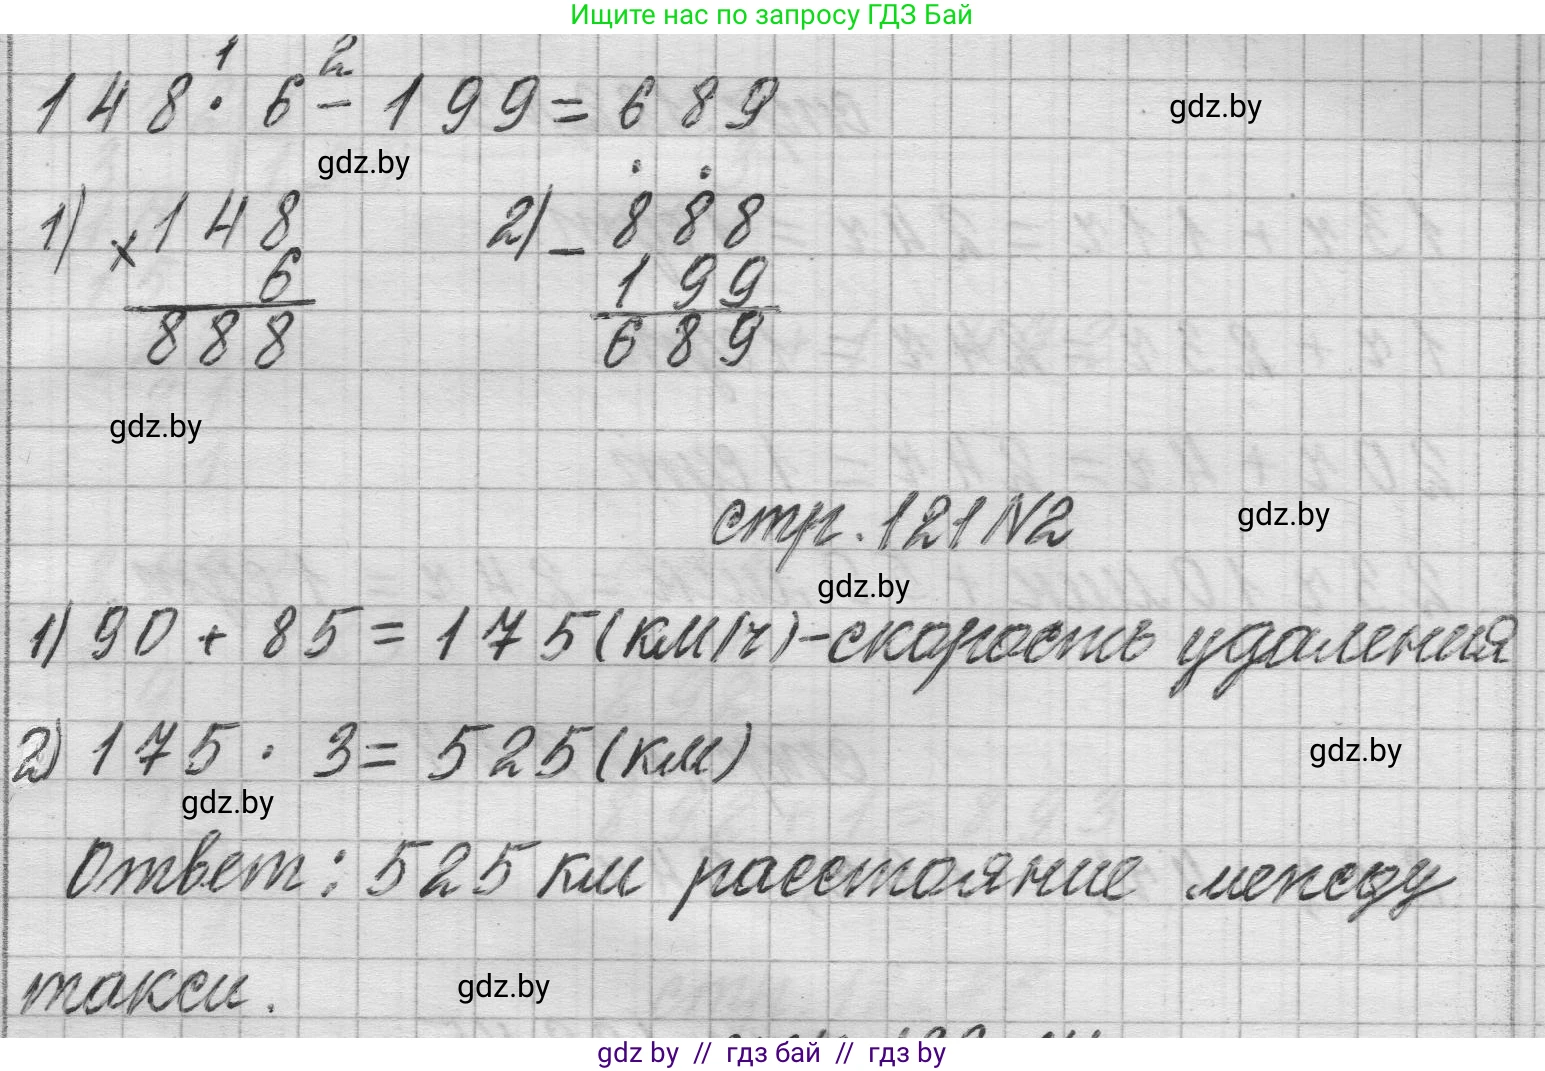 Ищите нас по запросу ГДЗ Бай
1 2
148 · 6 - 199 = 689
gdz.by
gdz.by
1) 148 2) 888
× 6 - 199
888 689
gdz.by
стр. 121 N2
gdz.by
gdz.by
1) 90 + 85 = 175 (км/ч) - скорость удаления
2) 175 · 3 = 525 (км)
gdz.by
gdz.by
Ответ: 525 км расстояние между
такси.
gdz.by
gdz by // гдз бай // гдз by